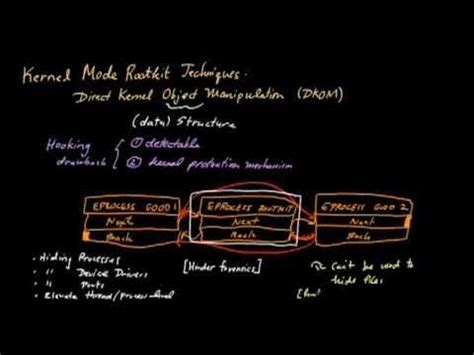 Kernel Mode Rootkit Techniques.
Direct Kernel Object Manipulation (DKOM)
(data) Structure
Hooking
drawback
① detectable
② kernel protection mechanism
EPROCESS GOOD 1
Next
Back
EPROCESS ROOTKIT
Next
Back
EPROCESS GOOD 2
Next
Back
• Hiding Processes
• " Device Drivers
• " Ports
• Elevate thread/process level
[Hinder forensics]
Can't be used to
hide files